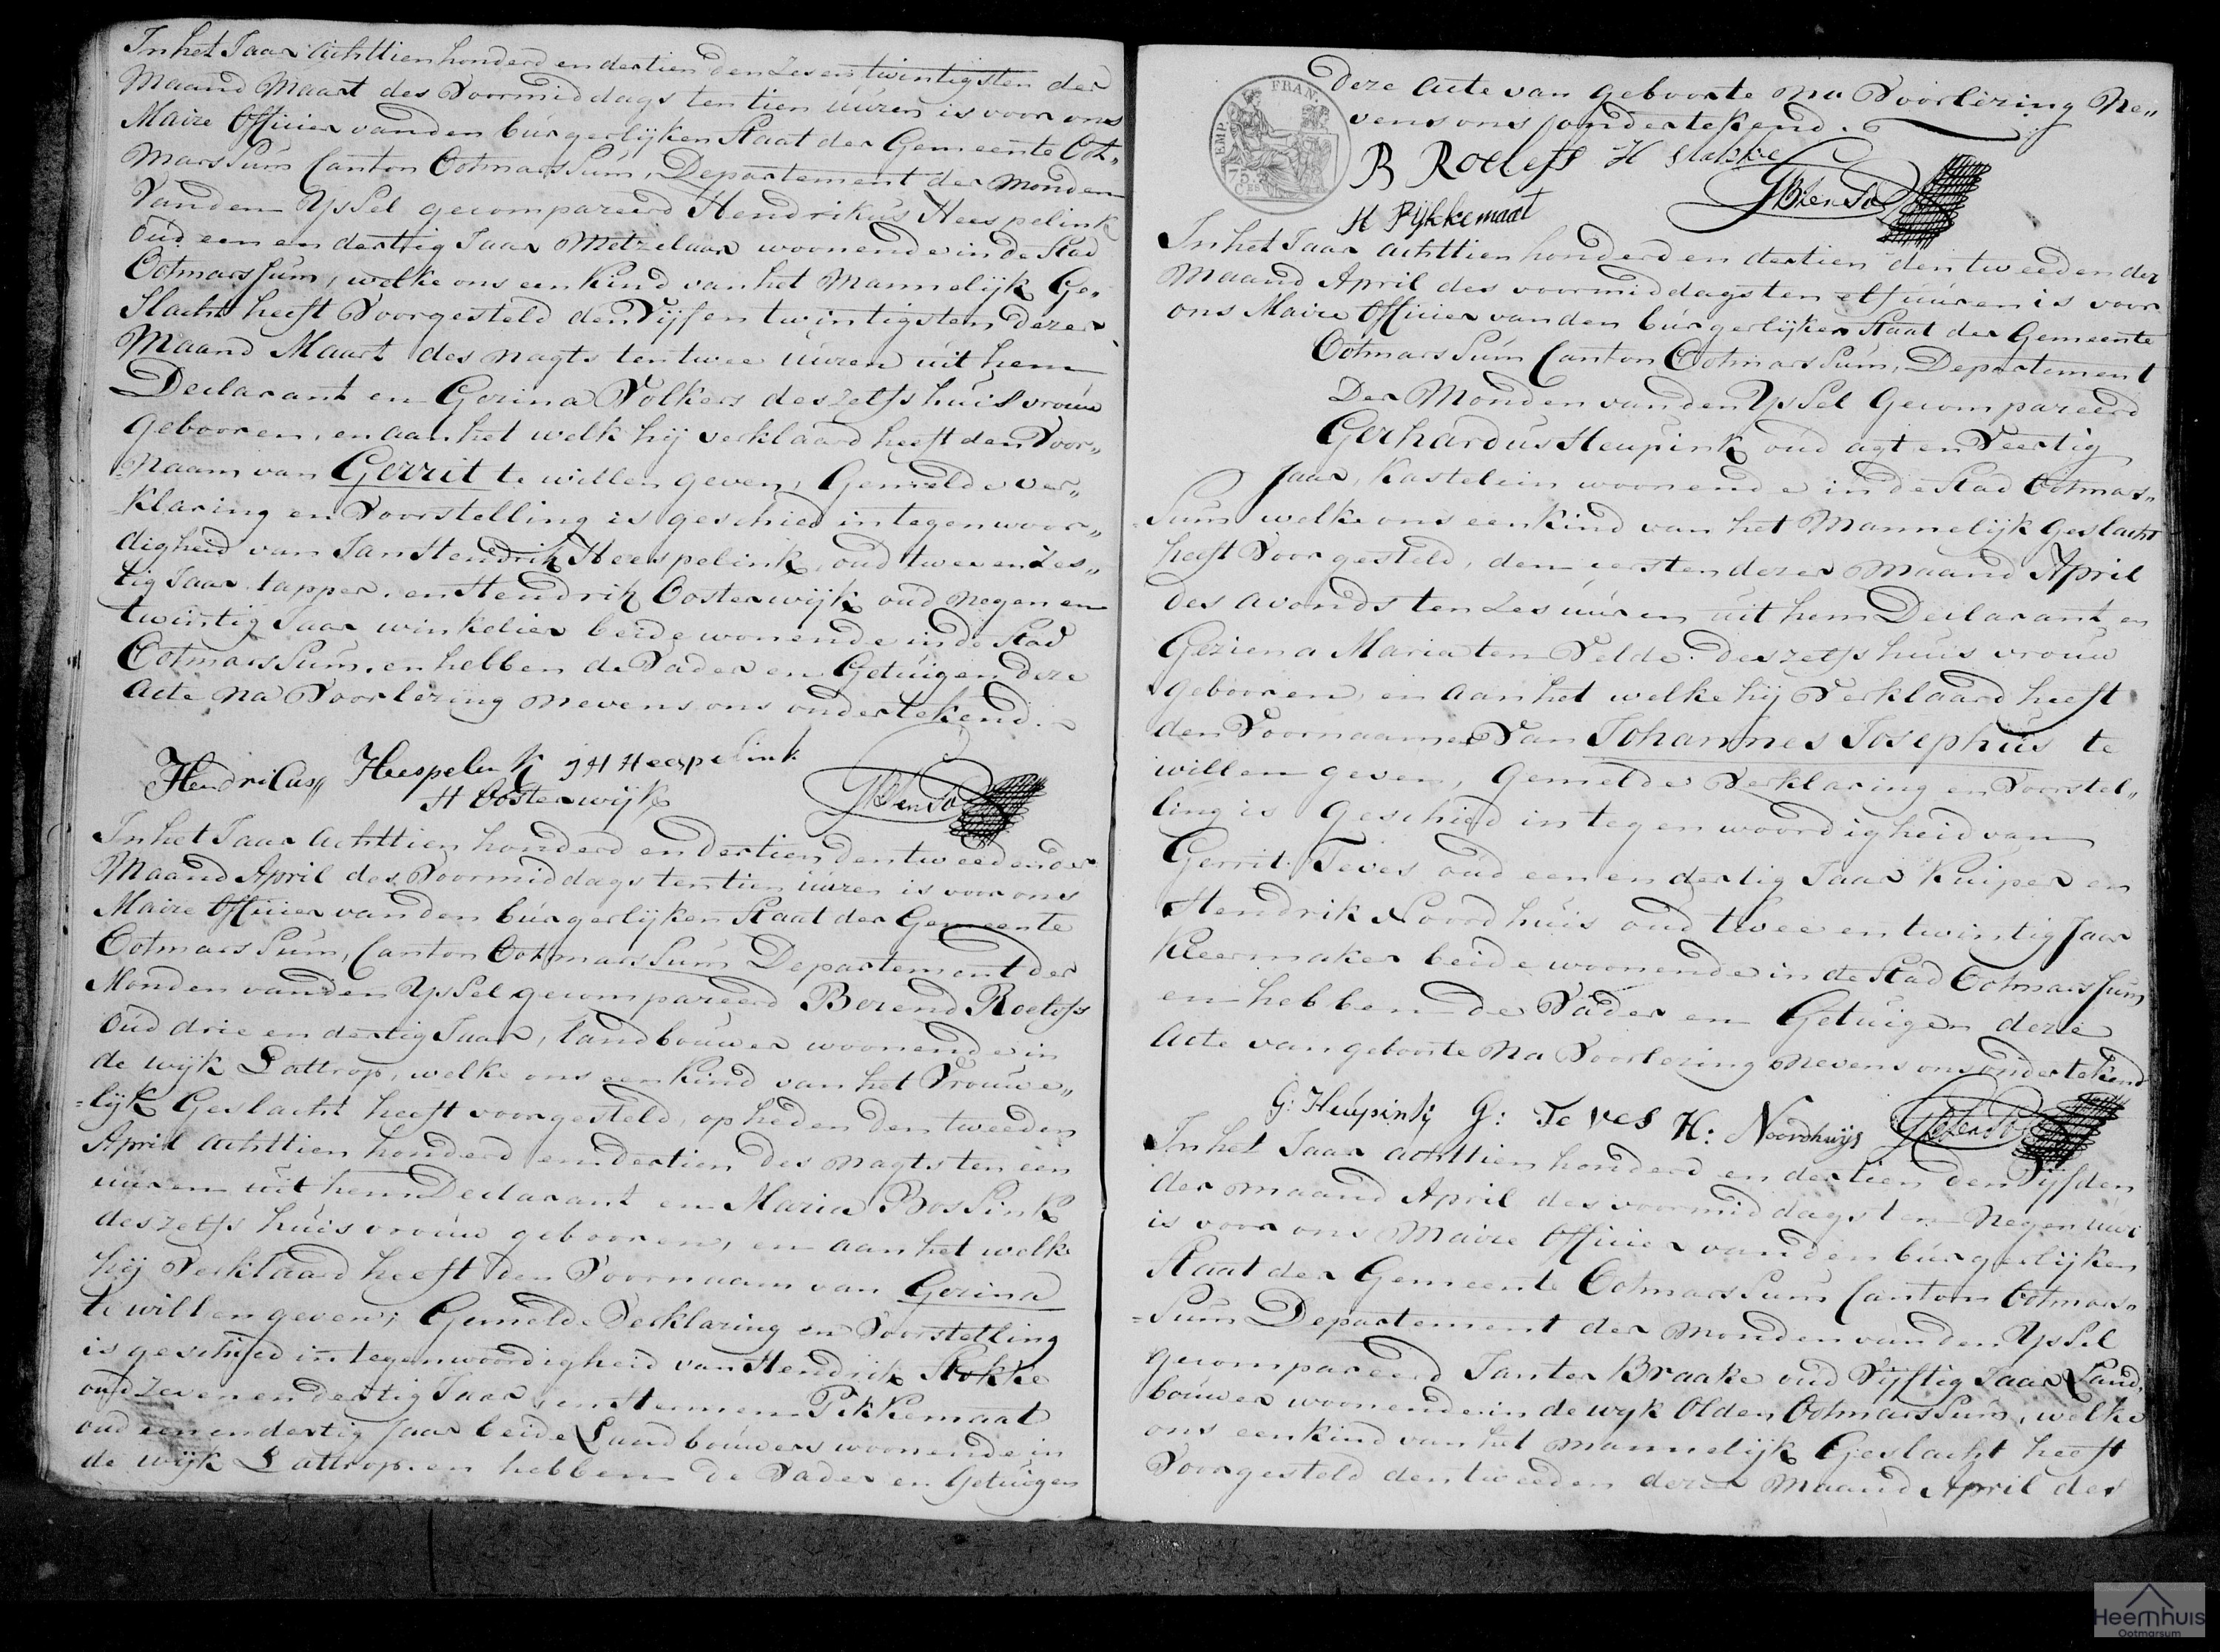 In het Jaar Achttien honderd en dertien den Zes en twintigsten der
Maand Maart des Voormiddags ten tien uuren is voor ons
Maire Officier van den burgerlijken Staat der Gemeente Oot„
marssum Canton Ootmarssum, Departement der Monden
Van den Yssel gecompareerd Hendrikus Heespelink
oud een en dertig Jaar Metzelaar woonende in de Stad
Ootmarssum, welke ons een kind van het Mannelijk Ge„
slacht heeft Voorgesteld den Vijf en twintigsten dezer
Maand Maart des nagts ten twee uuren uit hem
Declarant en Gezina Volkers deszelfs huisvrouw
gebooren, en aan het welk hij verklaard heeft den Voor„
naam van Gerrit te willen geven, Gemelde ver„
klaring en Voorstelling is geschied in tegenwoor„
digheid van Jan Hendrik Heespelink, oud twee en Zes„
tig Jaar tapper. en Hendrik Oosterwijk oud negen en
twintig Jaar winkelier beide wonende in de Stad
Ootmarssum. en hebben de Vader en Getuigen deze
Acte na Voorlezing nevens ons ondertekend.
Hendricus„ Heespelenk JH Heespelink
H Oosterwijk
In het Jaar Achttien honderd en dertien den tweeden der
Maand April des Voormiddags ten tien uuren is voor ons
Maire Officier van den burgerlijken Staat der Gemeente
Ootmarssum, Canton Ootmarssum Departement der
Monden van den Yssel gecompareerd Berend Roelofs
oud drie en dertig Jaar, landbouwer woonende in
de wijk Lattrop, welke ons een kind van het Vrouwe„
=lijk Geslacht heeft voorgesteld, op heden den tweeden
April Achttien honderd en dertien des nagts ten een
uuren uit hem Declarant en Maria Bossink
deszelfs huisvrouw gebooren, en aan het welk
hij Verklaard heeft den Voornaam van Gezina
te willen geven; Gemelde Verklaring en Voorstelling
is geschied in tegenwoordigheid van Hendrik Stokke
oud zeven en dertig Jaar, en Hermen Pikkemaat
oud een en dertig Jaar beide Landbouwers woonende in
de wijk Lattrop. en hebben de Vader en Getuigen
EMP. FRAN.
75. Ces
Deze Acte van geboorte na Voorlezing Ne„
vens ons ondertekend.
B Roelefs H Stokke
H Pijkkemaat
In het Jaar Achttien honderd en dertien den tweeden der
Maand April des voormiddags ten elf uuren is voor
ons Maire Officier van den burgerlijken Staat der Gemeente
Ootmarssum Canton Ootmarssum, Departement
Der Monden van den Yssel Gecompareerd
Gerhardus Heupink oud agt en Veertig
Jaar, Kastelein woonende in de Stad Ootmars„
=sum welke ons een kind van het Mannelijk Geslacht
heeft Voorgesteld, den eersten dezer Maand April
des avonds ten Zes uuren uit hem Declarant en
Geziena Maria ten Velde. deszelfs huisvrouw
gebooren, en aan het welke hij Verklaard heeft
den Voornaamen Van Johannes Josephus te
willen geven, Gemelde Verklaring en Voorstel„
ling is Geschied in tegenwoordigheid van
Gerrit Teves oud een en dertig Jaar Kuiper en
Hendrik Noordhuis oud twee en twintig Jaar
Kleermaker beide woonende in de Stad Ootmarssum
en hebben de Vader en Getuigen deze
Acte van geboorte na Voorlezing nevens ons ondertekend
G: Heupink G: Teves H: Noordhuijs
In het Jaar Achttien honderd en dertien den Vijfden
der maand April des voormiddags ten Negen uur
is voor ons Maire Officier van den burgerlijken
Staat der Gemeente Ootmarssum Canton Ootmars„
=sum Departement der Monden van den Yssel
gecompareerd Jan ter Braake oud Vijftig Jaar Land„
bouwer woonende in de wijk Olden Ootmarssum, welke
ons een kind van het Mannelijk Geslacht heeft
Voorgesteld den tweeden dezer Maand April des
Heemhuis
Ootmarsum